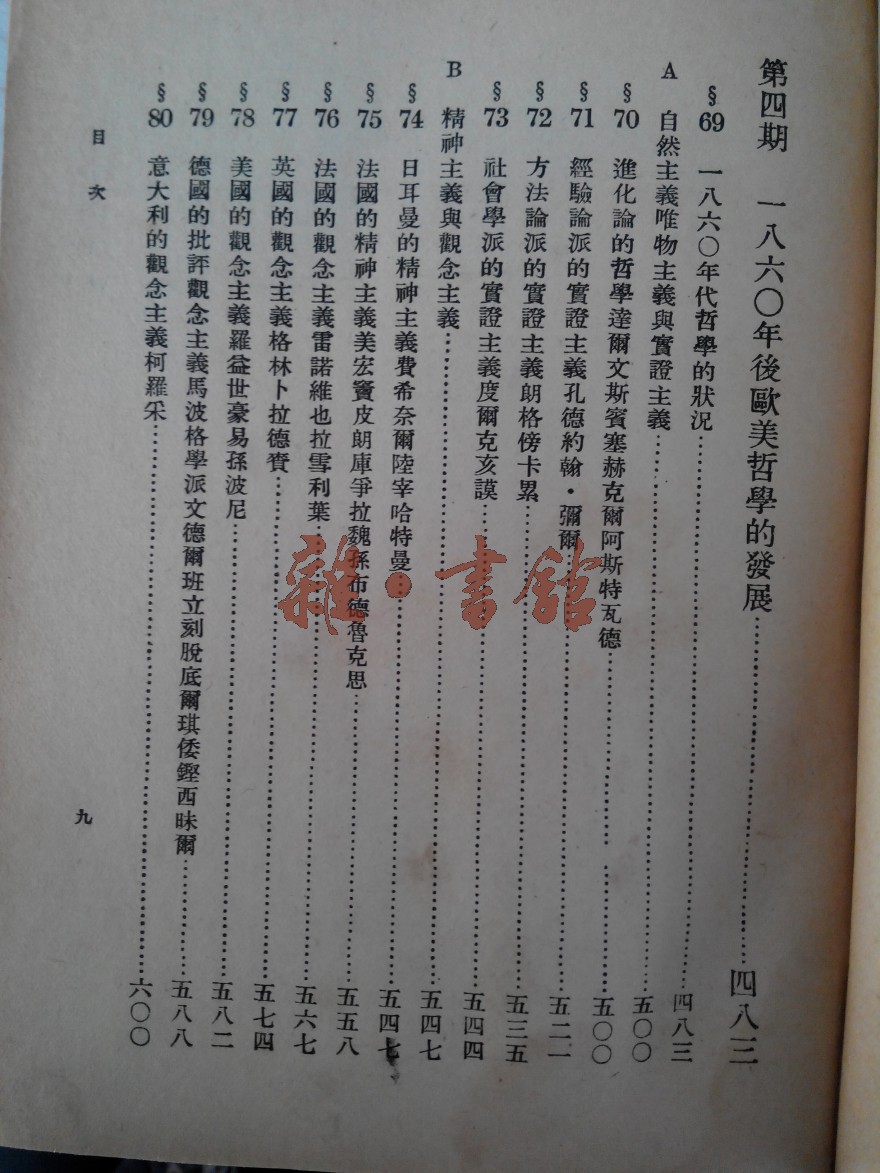 第四期　一八六〇年後歐美哲學的發展……四八三
§69　一八六〇年代哲學的狀況……四八三
A　自然主義唯物主義與實證主義……五〇〇
§70　進化論的哲學達爾文斯賓塞赫克爾阿斯特瓦德……五〇〇
§71　經驗論派的實證主義孔德約翰・彌爾……五二一
§72　方法論派的實證主義朗格傍卡累……五三五
§73　社會學派的實證主義度爾克亥謨……五四四
B　精神主義與觀念主義……五四七
§74　日耳曼的精神主義費希奈爾陸宰哈特曼……五四七
§75　法國的精神主義美宏竇皮朗庫爭拉魏孫布德魯克思……五五八
§76　法國的觀念主義雷諾維也拉雪利葉……五六七
§77　英國的觀念主義格林卜拉德賚……五七四
§78　美國的觀念主義羅益世豪易孫波尼……五八二
§79　德國的批評觀念主義馬波格學派文德爾班立刻脫底爾琪倭鏗西昧爾……五八八
§80　意大利的觀念主義柯羅采……六〇〇
目次
九
雜・書館